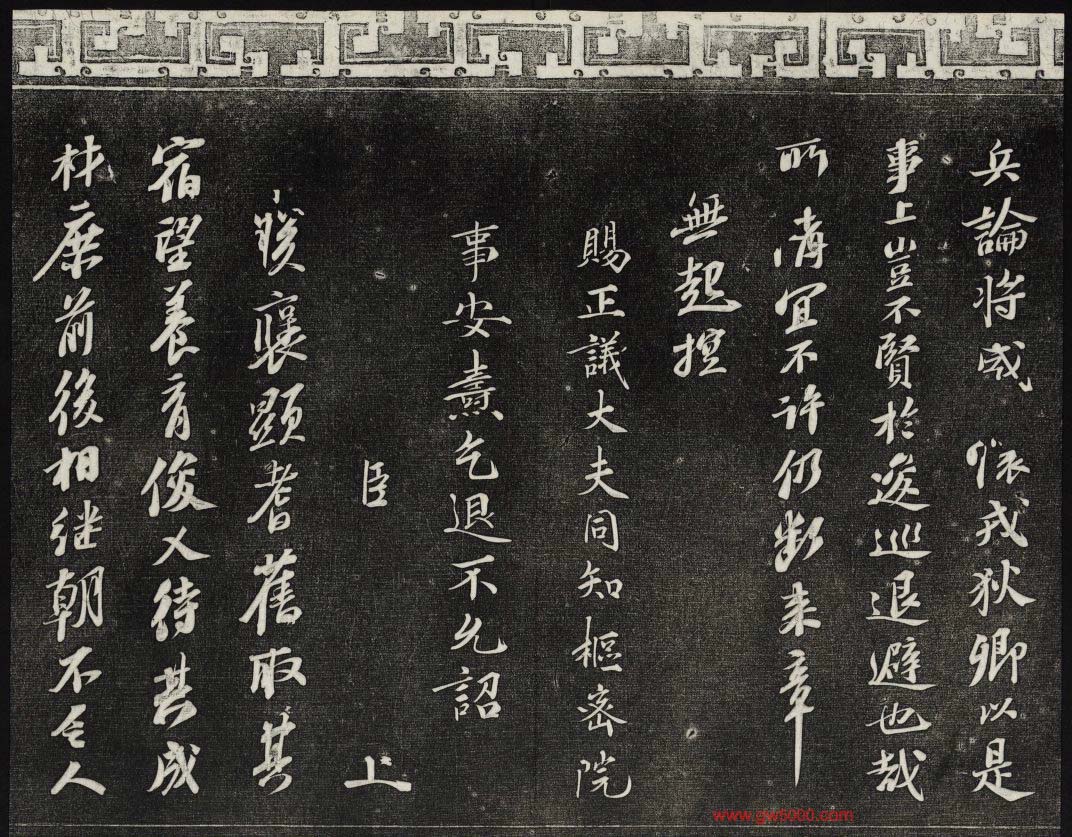 兵論將成 懷戎狄卿以是
事上豈不賢於逡巡退避也哉
所請宜不許仍斷來章
無起擅
賜正議大夫同知樞密院
事安燾乞退不允詔
臣 上
朕褒顯耆舊取其
宿望養育俊乂待其成
材庶前後相継朝不乏人
www.gw5000.com